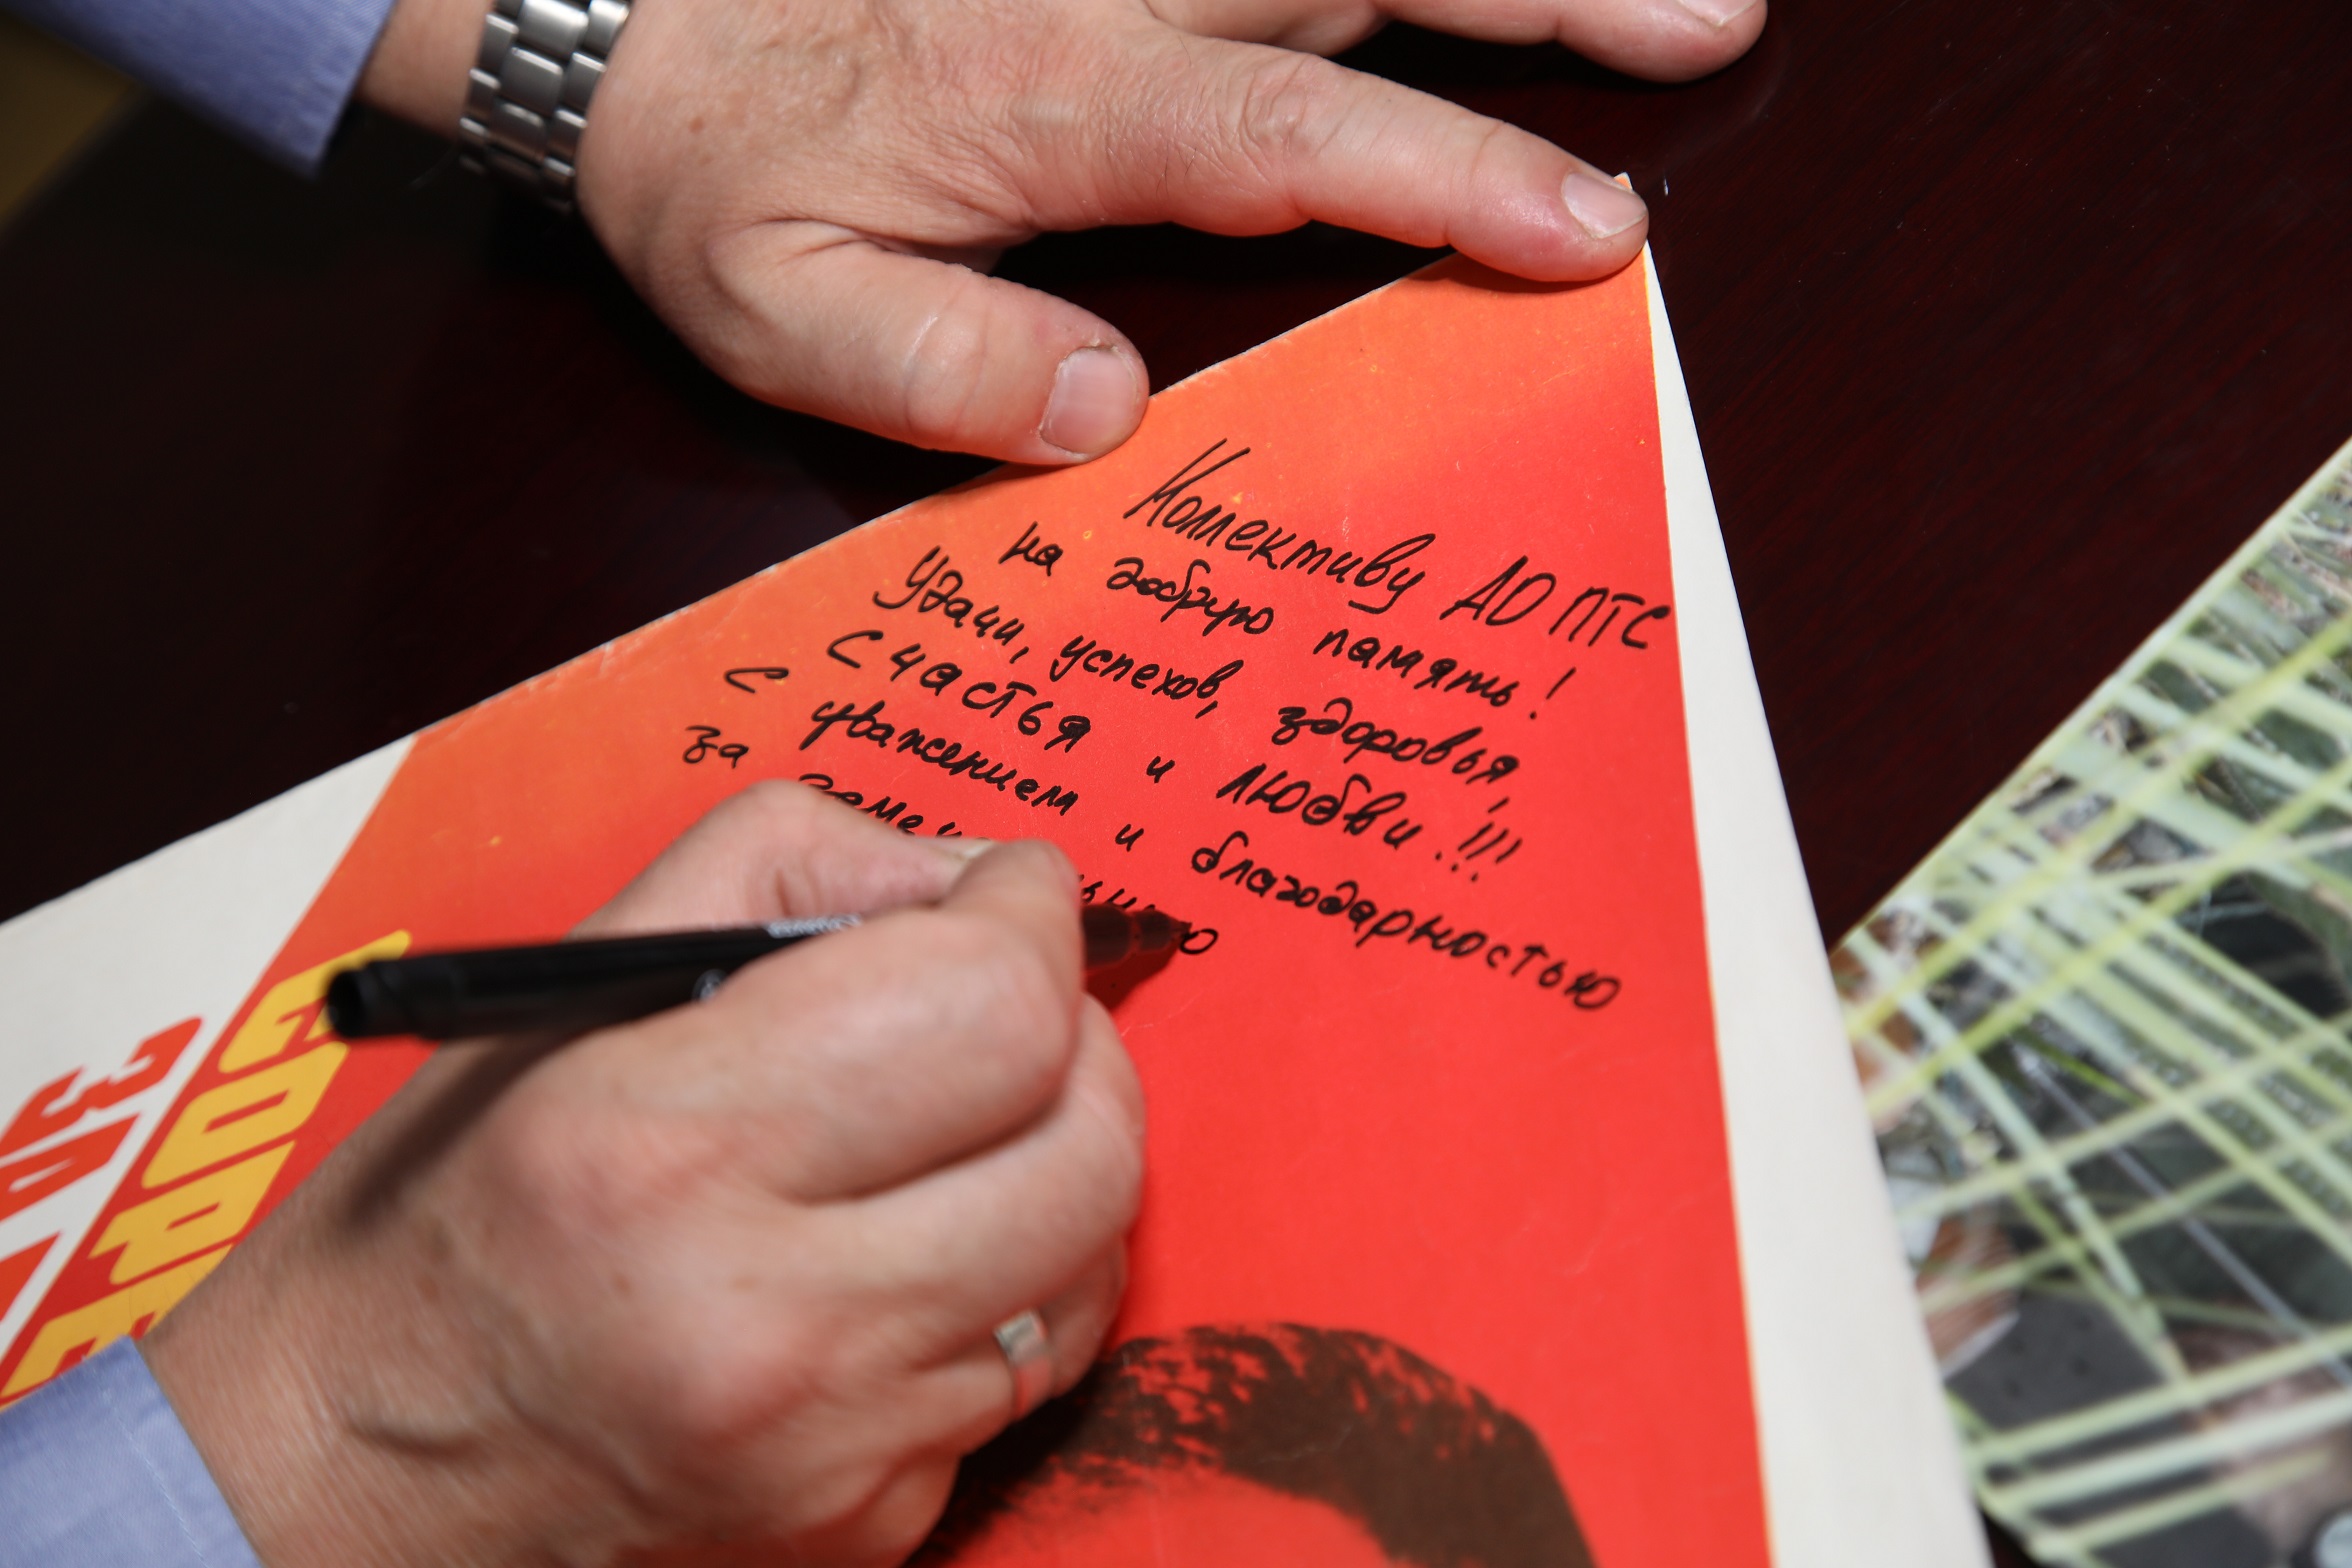 Коллективу АО ПТС
на добрую память!
Удачи, успехов, здоровья,
Счастья и Любви!!!
С уважением и благодарностью
за